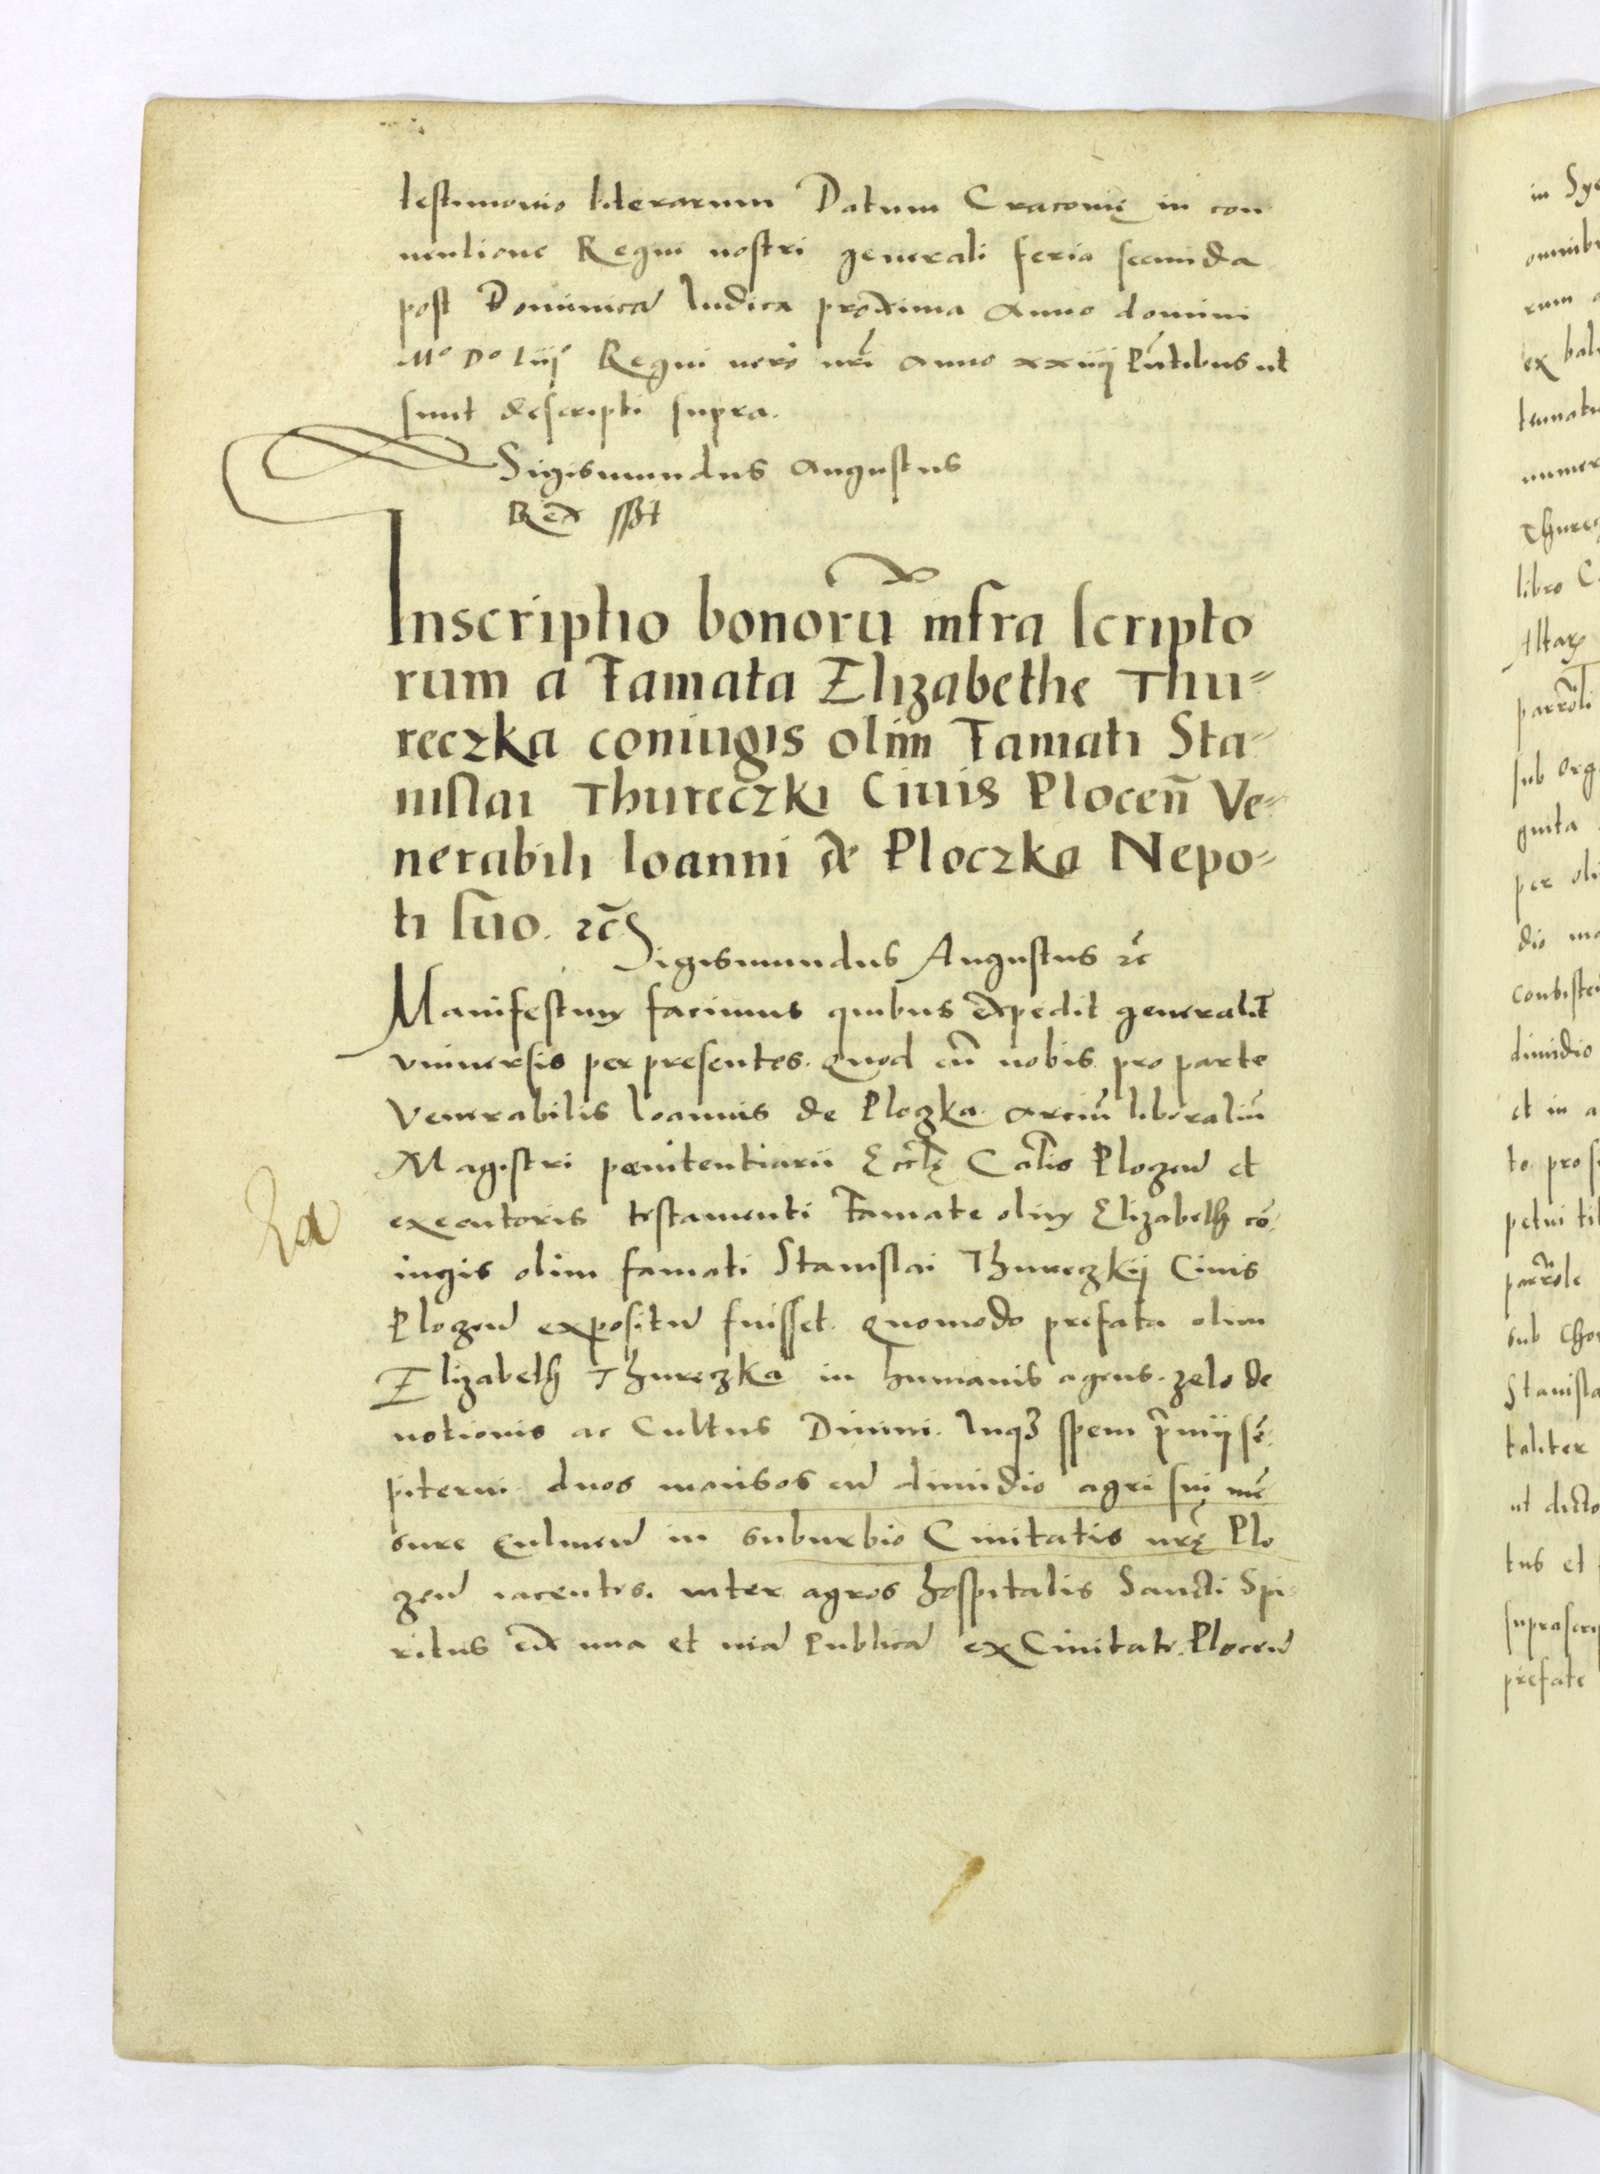 testimonio literarum Datum Craconię in con
uentione Regni nostri generali feria secunda
post Dominicā Iudica proxima Anno domini
Mº Dº Liijº Regni vero nrī Anno xxiiij Pn̄tibus ut
sunt descripti supra.
Sigismundus Augustus
Rex sszt
Inscriptio bonorū infra scripto
rum a Famata Elizabethe Thu=
reczka coniugis olim Famati Sta=
nislai Thureczki Ciuis Plocen̄ Ve=
nerabili Ioanni de Ploczka Nepo=
ti suo. ꝛc̄
Sigismundus Augustus ꝛc̄
Manifestum facimus quibus expedit generalit̄
vniuersis per presentes. Quod cū nobis pro parte
Venerabilis Ioannis de Plogzka. Arciū liberaliū
Magistri pœnitentiarii Eccl̄ę Catl̄is Plogzen̄ et
executoris testamenti Famate olim Elizabeth cō
iugis olim famati Stanislai Thureczkij Ciuis
Plogzen̄ expositū fuisset. Quomodo prefata olim
Elizabeth Thureczka in humanis agens. zelo de
uotionis ac Cultus Diuini. Inqꝫ spem p̄mij sē
piterni duos mansos cū dimidio agri sui mē
sure Culmen̄ in suburbio Ciuitatis nrę̄ Plo
gzen̄ iacentis. inter agros hospitalis Sancti Spi
ritus ex una et viā Publicā ex Ciuitate. Plocen̄
2a
in
rum
ex
numer
libro
sub
per
dio
dimidio
et in a
to. pro
sub
Stanisla
taliter
ut dicto
tus et
suprascrip
prefate